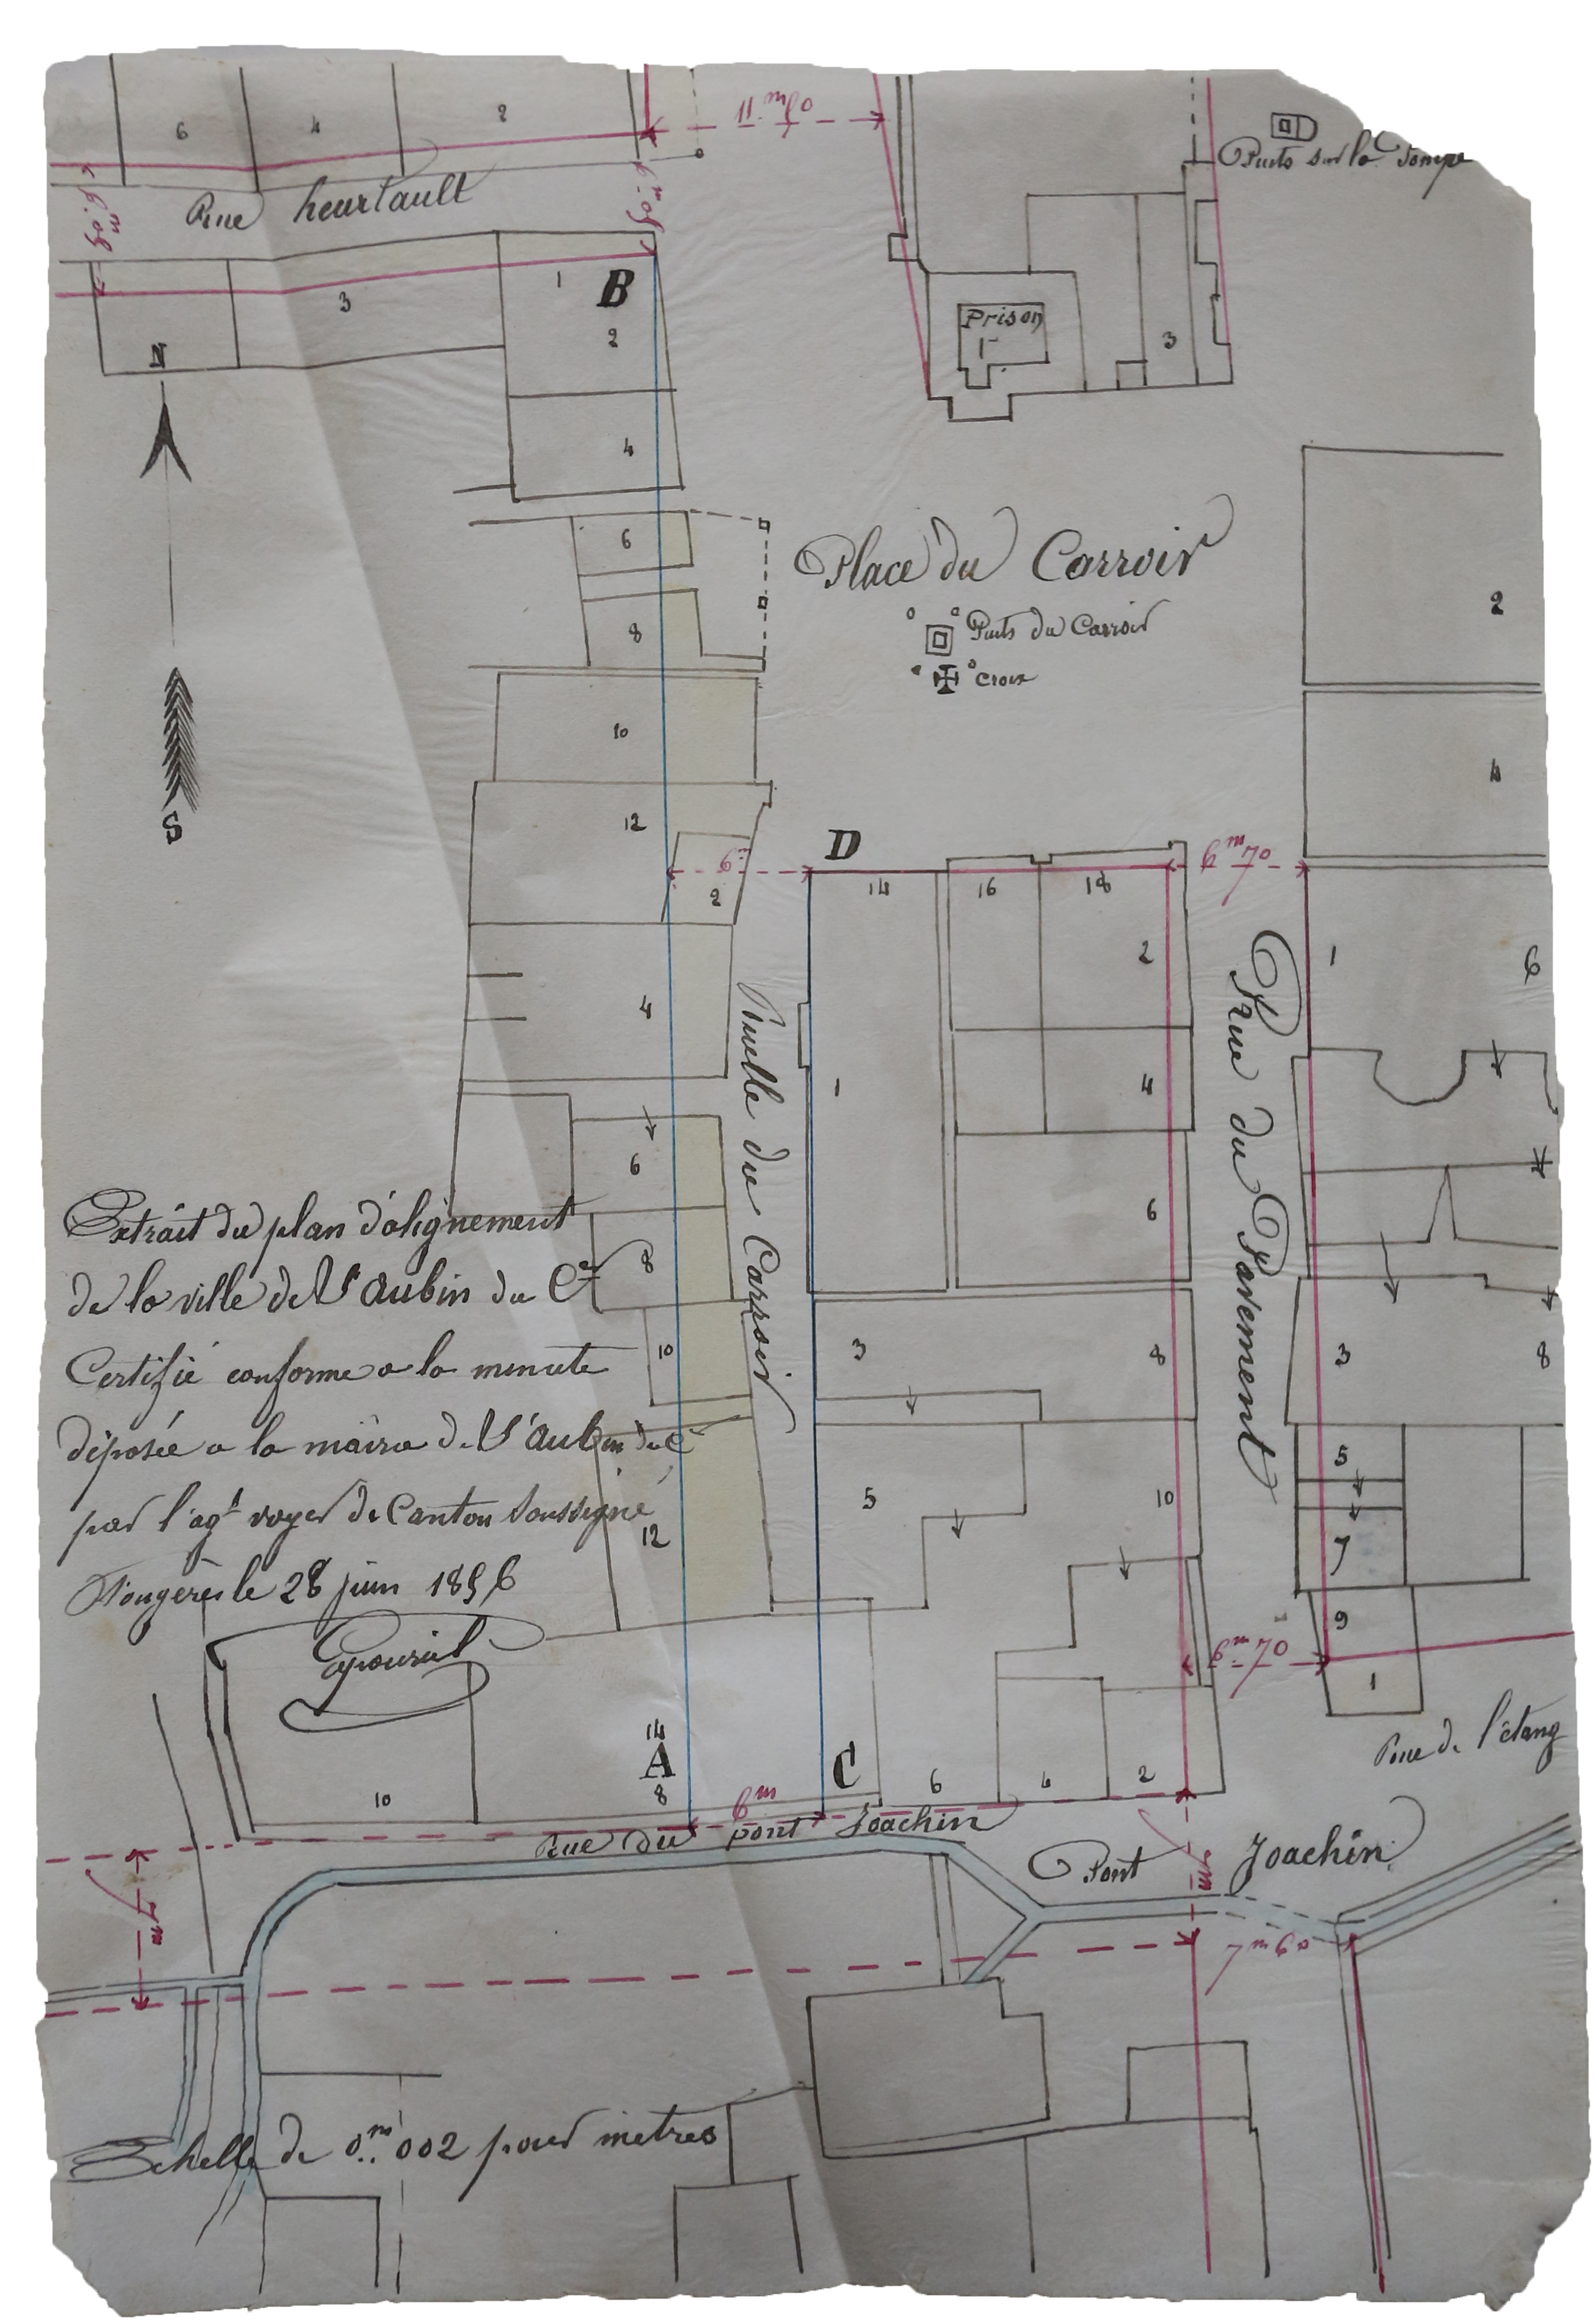 6 4 2
11m 50
Puits sur la Pompe
Rue heurtault
6m 50
6m 50
1 B
2
3
N
4
Prison
1
3
6
8
Place du Carroir
Puits du Carroir
Croix
2
4
S
10
12
6m
2
D
14 16 18
6m 70
2
1 6
4
1
4
Ruelle du Carroir
Rue du Pavement
6
6
8
Extrait du plan d'alignement
de la ville de St Aubin du Cer
Certifié conforme a la minute
déposée a la mairie de St Aubin du C
par l'agt voyer de Canton Soussigné
Fougères le 28 juin 1856
10
3 8
3 8
12
5 10
5
7
9
6m 70
1
Rue de l'étang
14
A
8
C
10
6 4 2
6m
Rue du pont Joachin
Pont Joachin
7m
7m
7m 60
Echelle de 0m 002 pour mètres